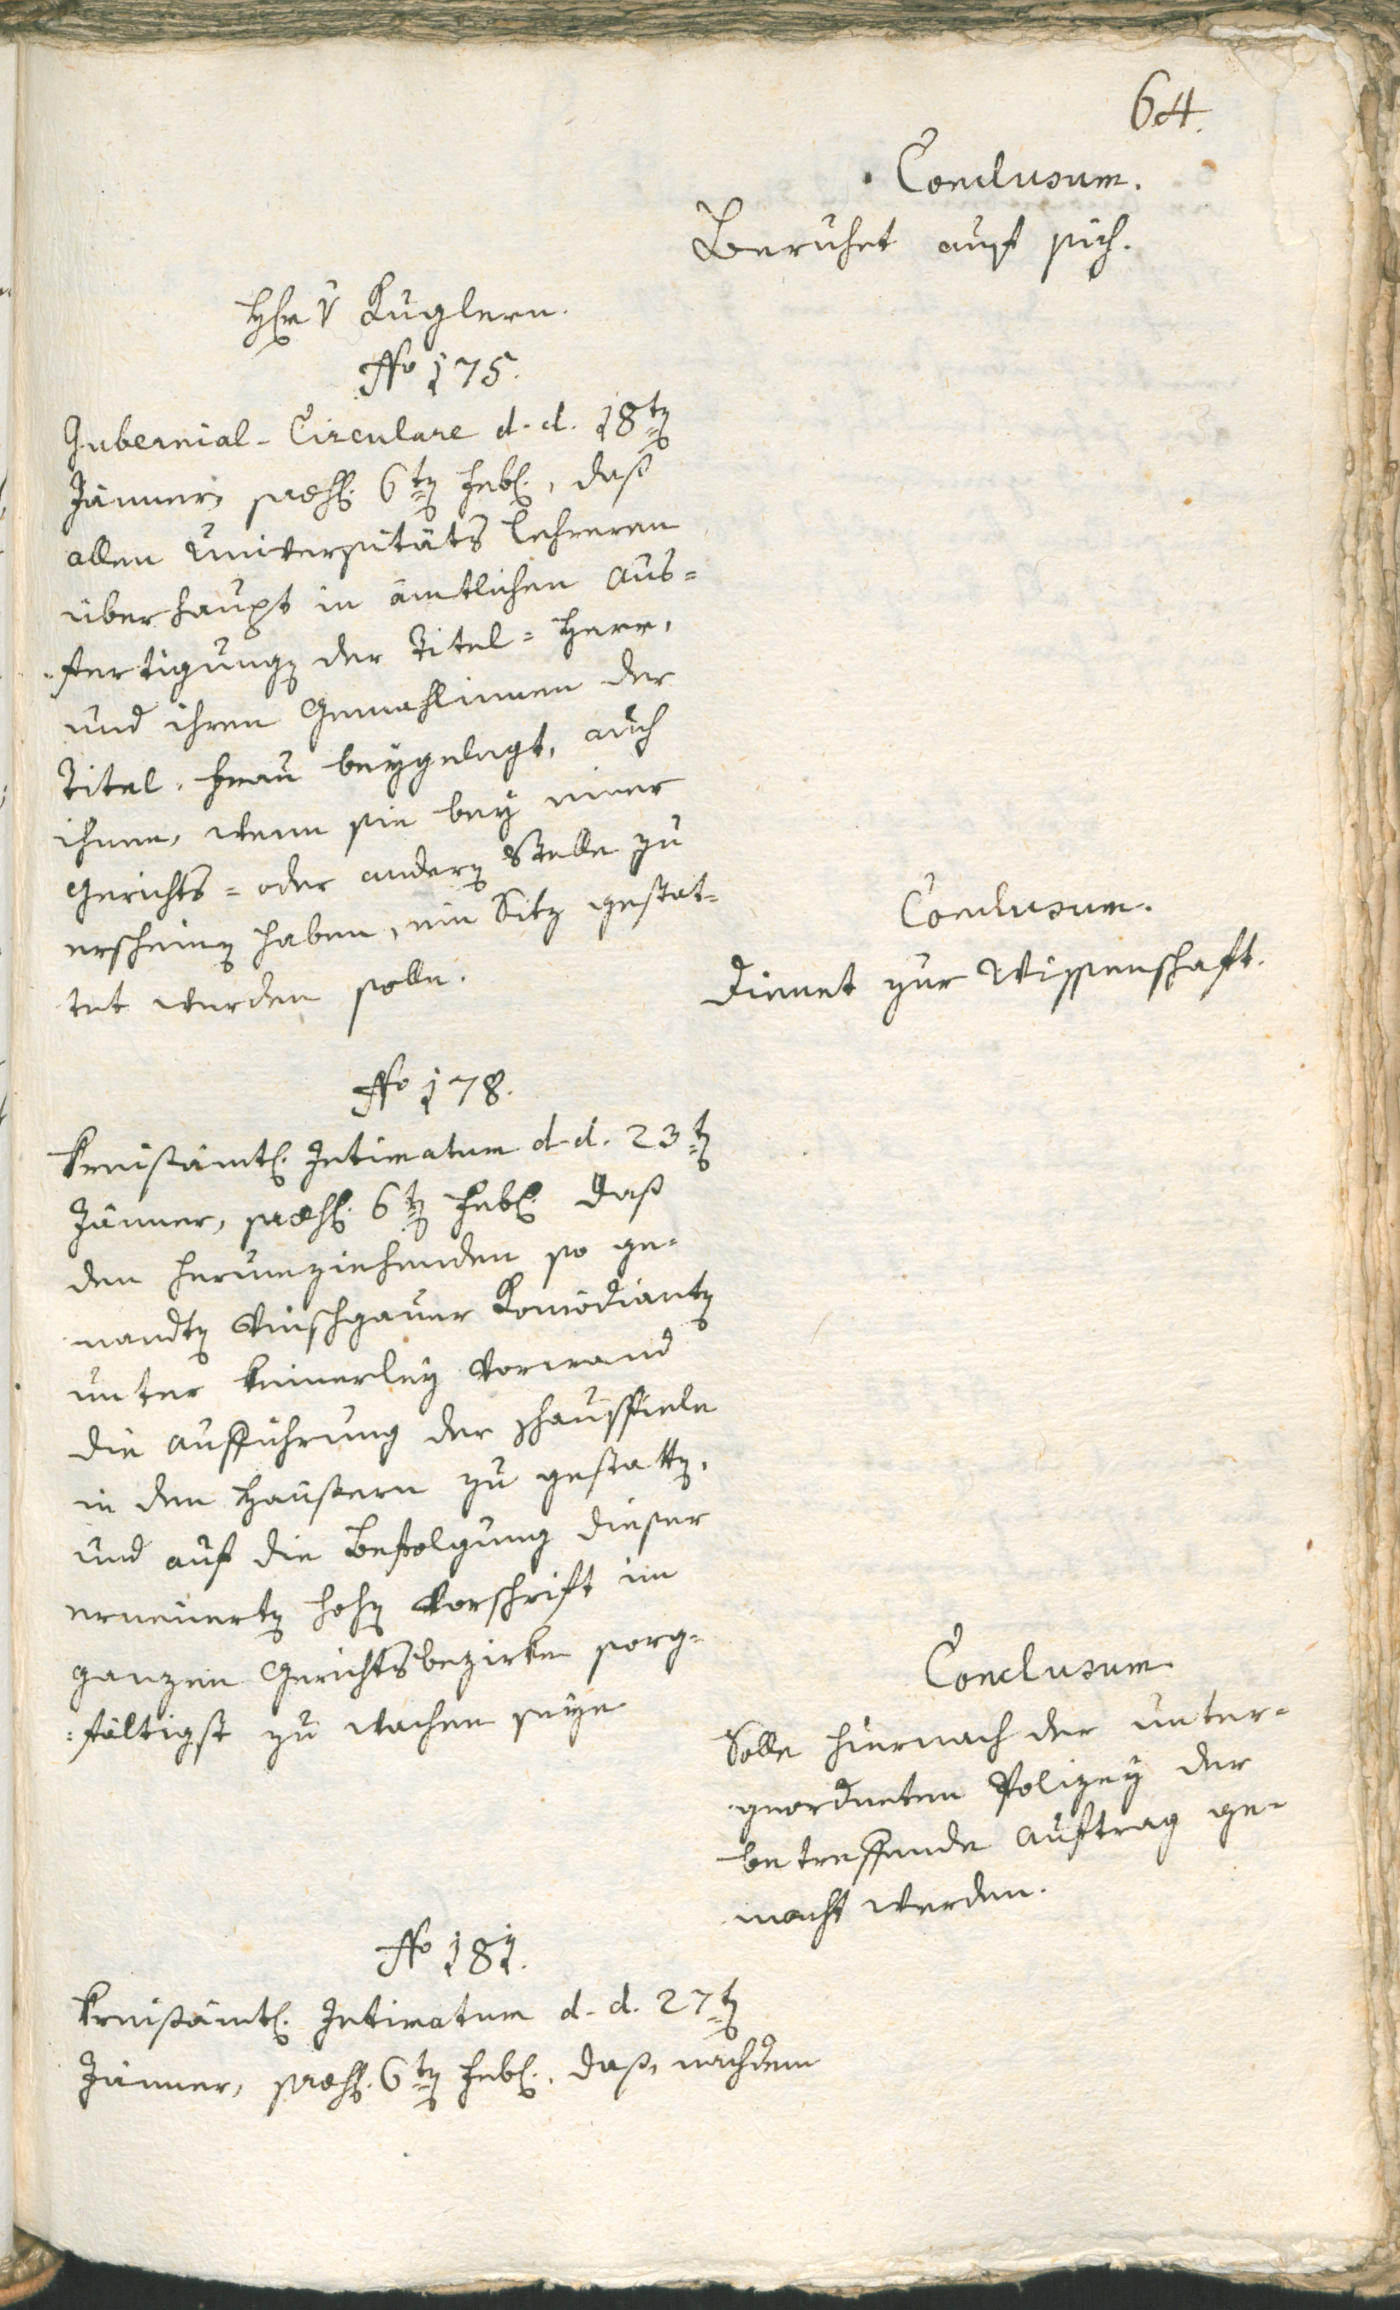 64.
Conclusum.
Beruhet auf sich.
Hr v Kuglern.
No 175.
Gubernial-Circulare d. d. 18ten
Jänner, 6ten Feb., daß
allen Universitäts Lehreren
überhaupt in ämtlichen Aus=
=fertigungen der Titel = Herr,
und ihren Gemahlinnen der
Titel, Frau beygelegt, auch
ihnen, wenn sie bey einer
Gerichts= oder anderen Stelle zu
erscheinen haben, ein Sitz gestat=
tet werden solle.
Conclusum.
Dienet zur Wissenschaft.
No 178.
Kreisämtl. Intimatum d. d. 23ten
Jänner, 6ten Feb. daß
den herumziehenden so ge=
nandten Vinschgauer Komödianten
unter keinerley Vorwand
die Aufführung der Schauspiele
in den Häusern zu gestatten,
und auf die Befolgung dieser
erneuerten hohen Vorschrift im
ganzen Gerichtsbezirke sorg=
=fältigst zu wachen seye
Conclusum
Solle hiernach der unter=
geordneten Polizey der
betreffende Auftrag ge=
macht werden.
No 181.
Kreisämtl. Intimatum d. d. 27ten
Jänner, 6ten Feb., daß, nachdem